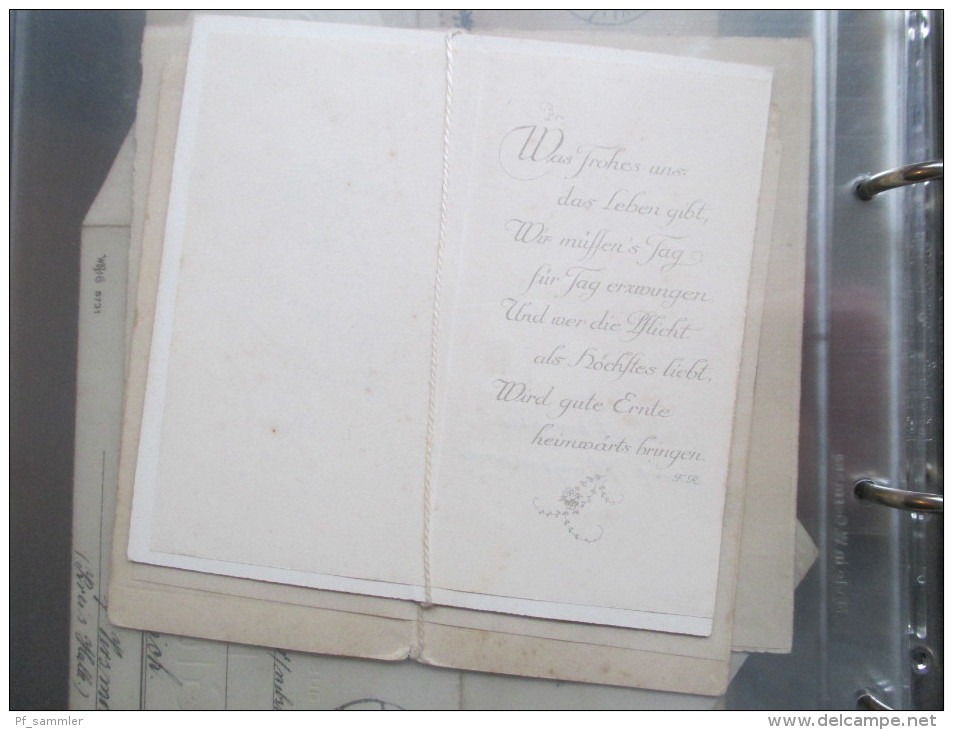 Was Frohes uns
das Leben gibt,
Wir müssen's Tag
für Tag erzwingen.
Und wer die Pflicht
als Höchstes liebt,
Wird gute Ernte
heimwärts bringen.
F. R.
(Kreis Halle.)
Pf_sammler
www.delcampe.net